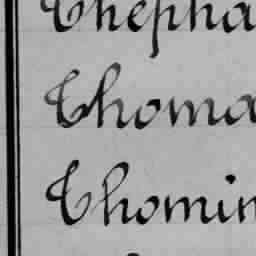 Thepha
Thoma
Thomin